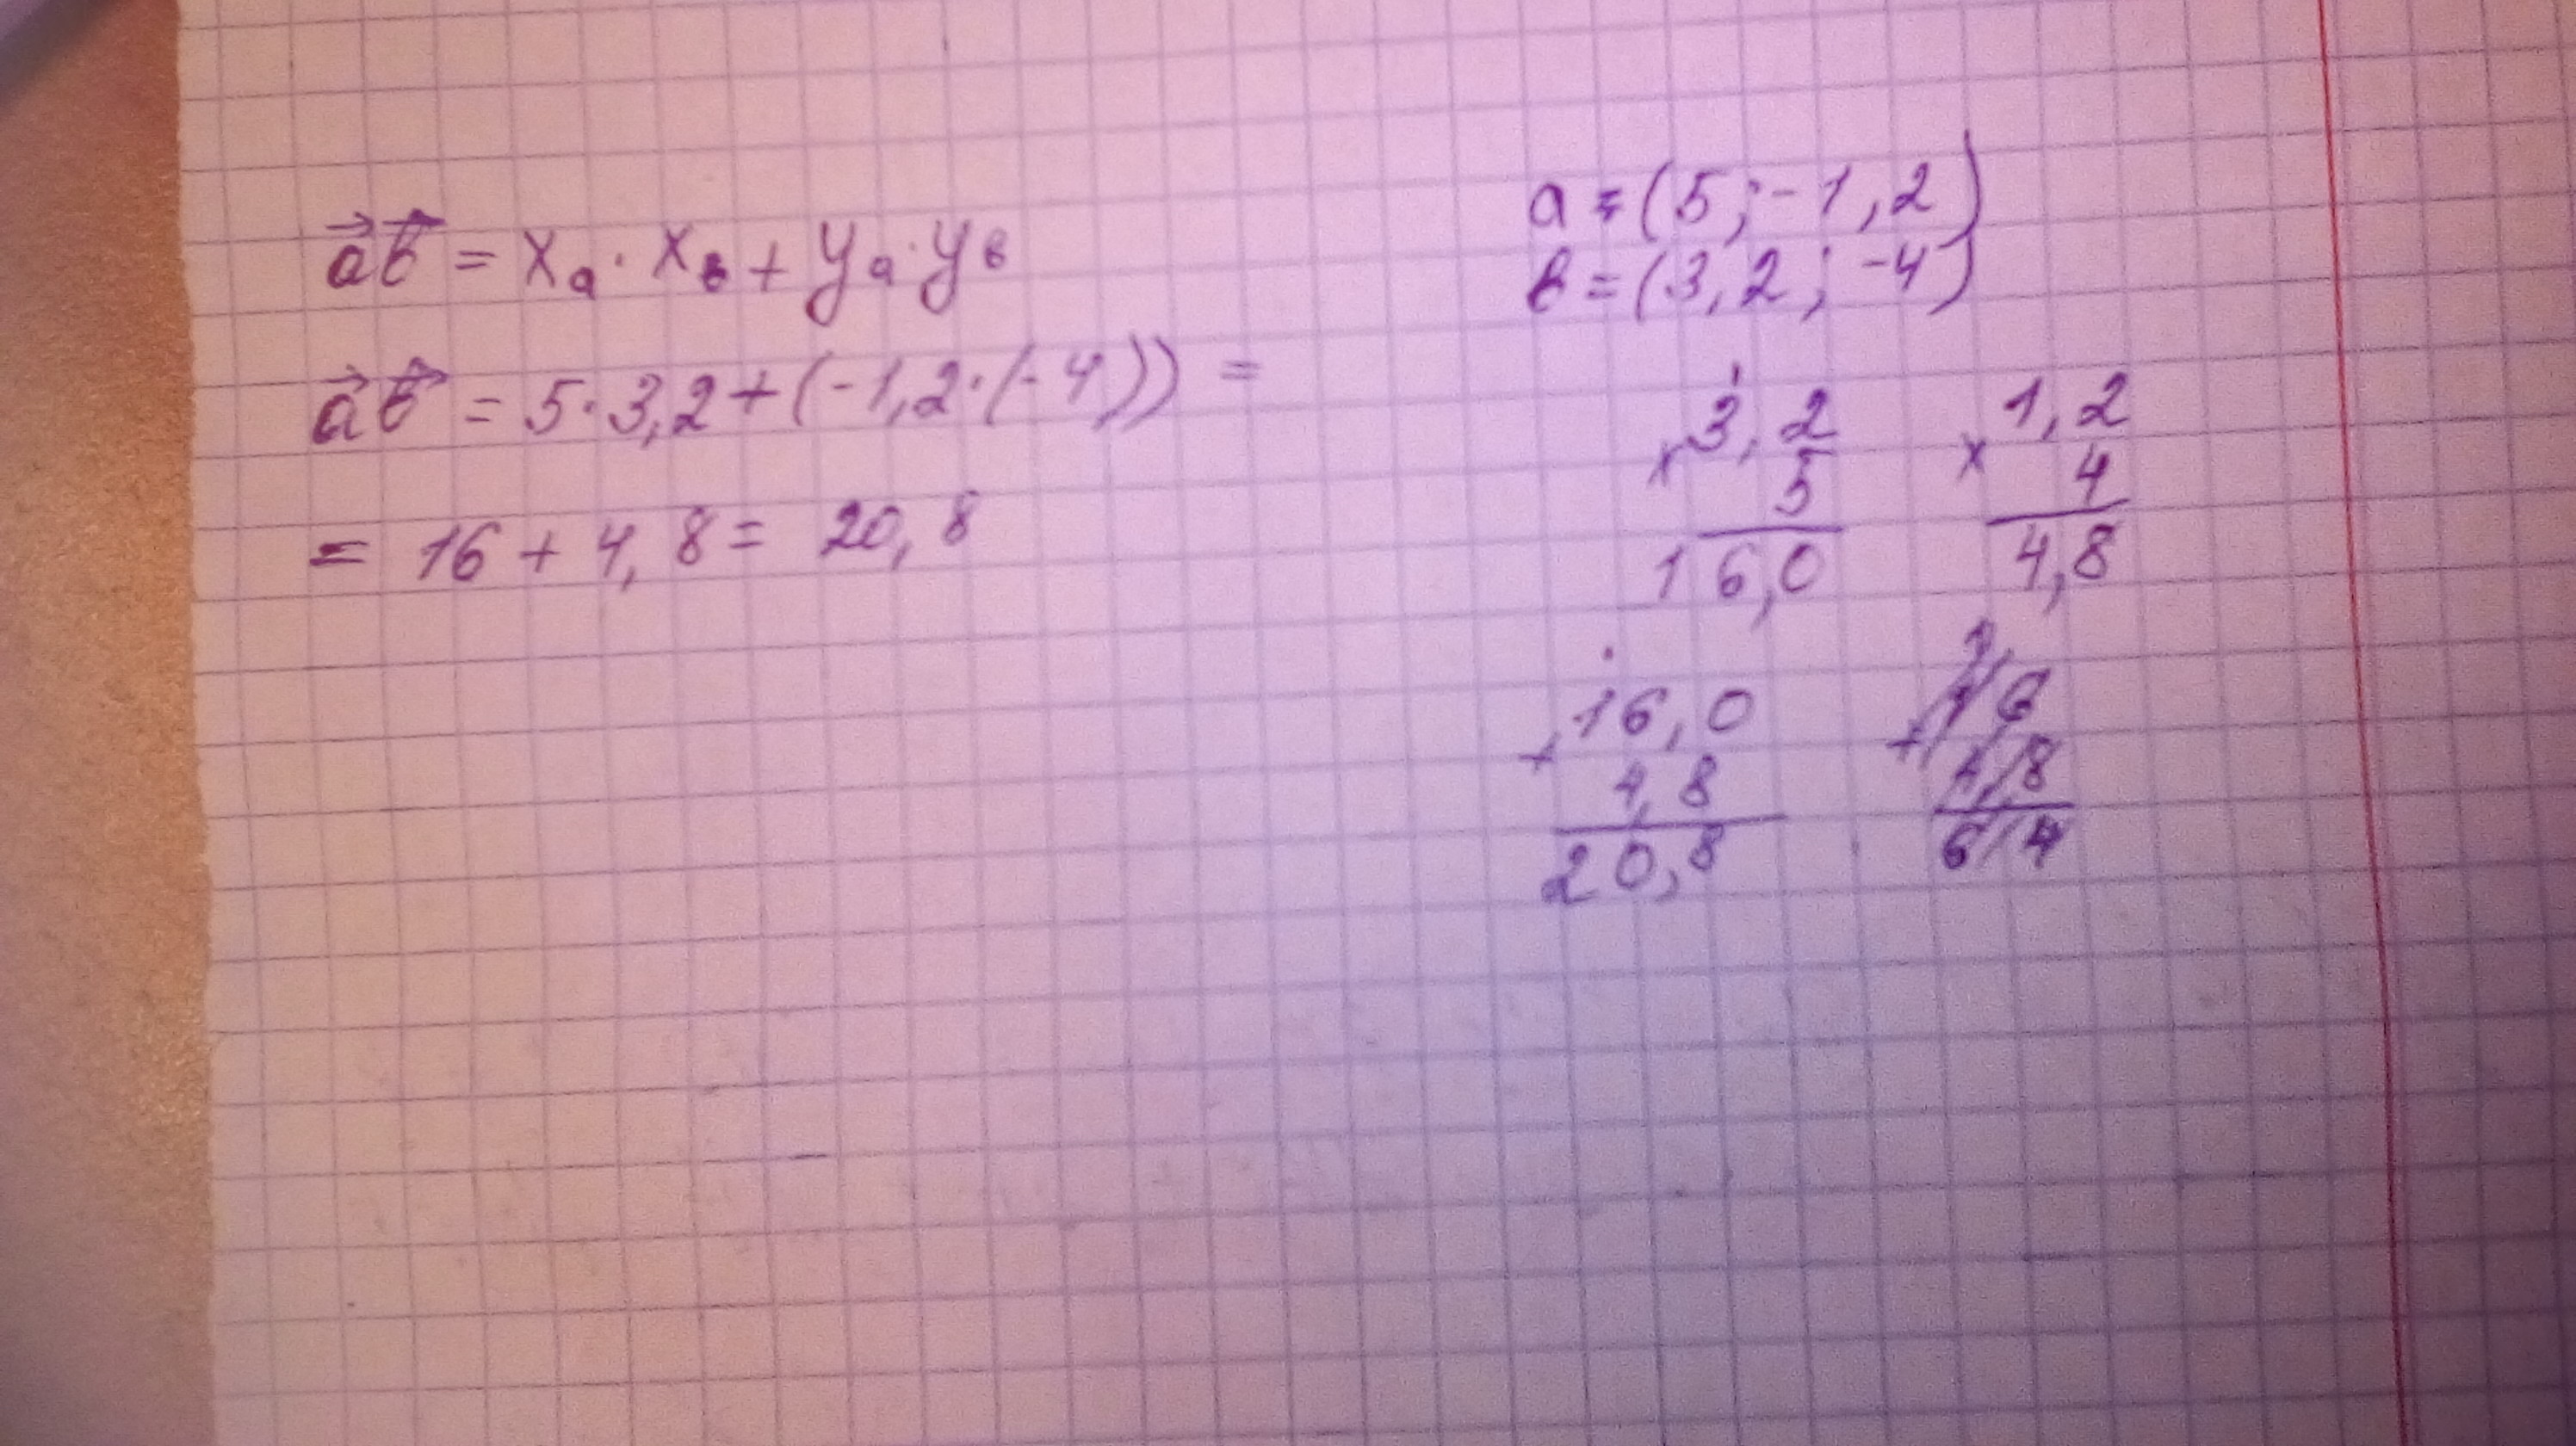 a⃗b⃗ = xₐ · x_b + yₐ · y_b
a⃗b⃗ = 5 · 3,2 + (-1,2 · (-4)) =
= 16 + 4,8 = 20,8
a = (5; -1,2)
b = (3,2; -4)
1
× 3,2
5
16,0
× 1,2
4
4,8
16,0
+ 4,8
20,8
1
+ 16
4,8
6,4